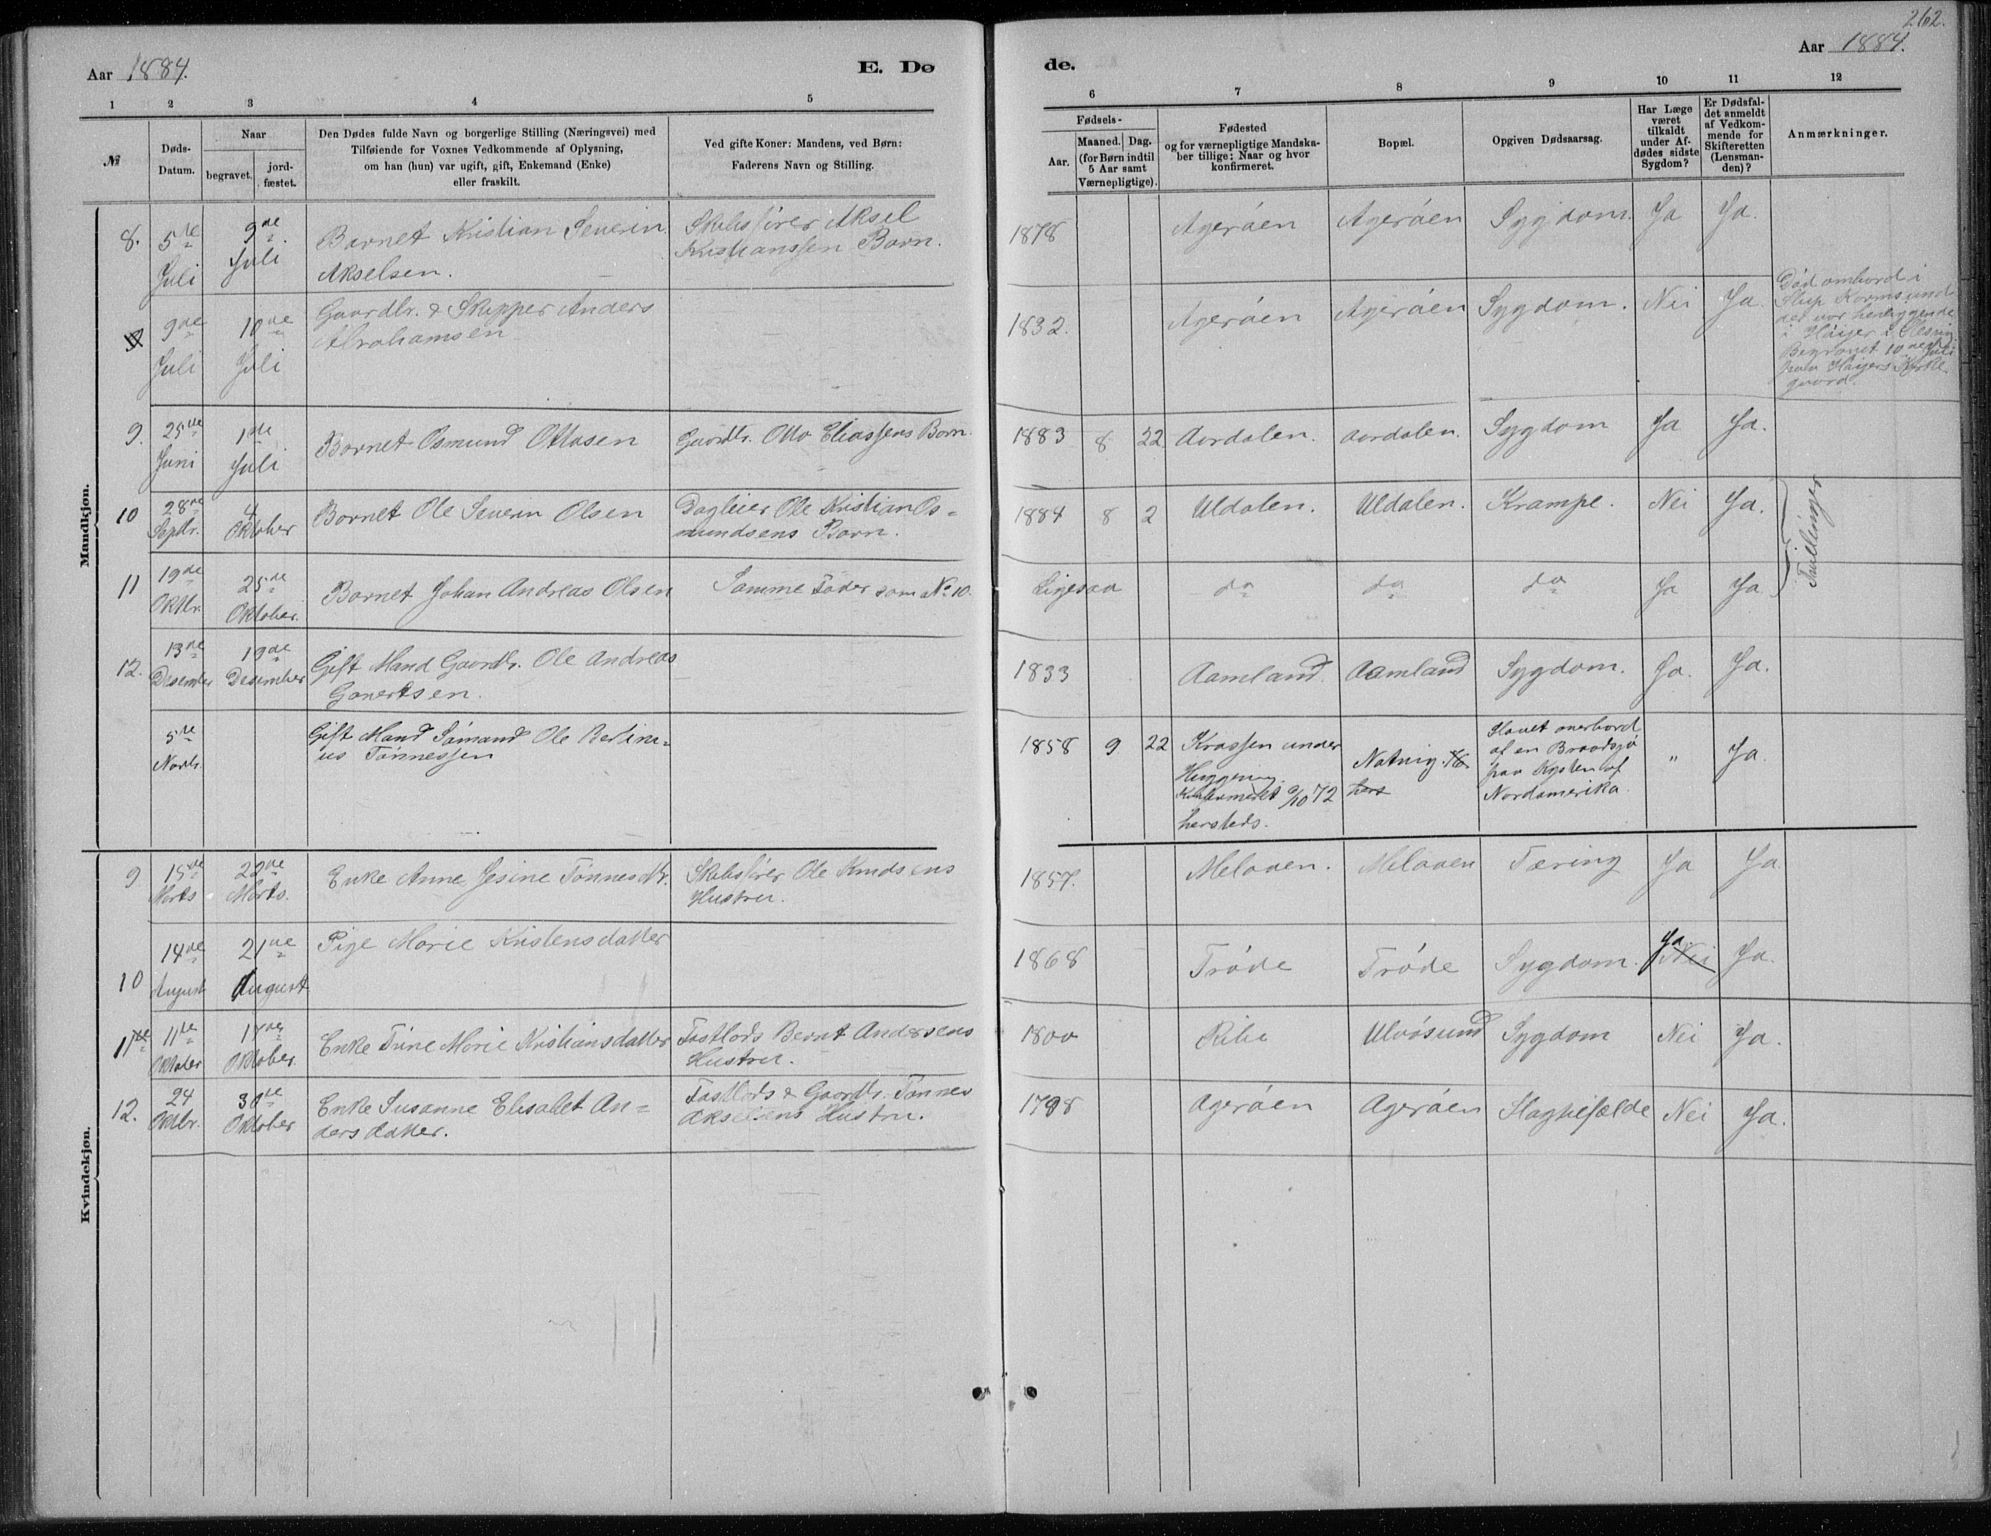 262.
Aar 1884.
E. Dø
de.
Aar 1884.
1 2 3 4 5 6 7 8 9 10 11 12
№
Døds-
Datum.
Naar
begravet.
jord-
fæstet.
Den Dødes fulde Navn og borgerlige Stilling (Næringsvei) med
Tilføiende for Voxnes Vedkommende af Oplysning,
om han (hun) var ugift, gift, Enkemand (Enke)
eller fraskilt.
Ved gifte Koner: Mandens, ved Børn:
Faderens Navn og Stilling.
Fødsels-
Aar.
Maaned. Dag.
(for Børn indtil
5 Aar samt
Værnepligtige).
Fødested
og for værnepligtige Mandska-
ber tillige: Naar og hvor
konfirmeret.
Bopæl.
Opgiven Dødsaarsag.
Har Læge
været
tilkaldt
under Af-
dødes sidste
Sygdom?
Er Dødsfal-
det anmeldt
af Vedkom-
mende for
Skifteretten
(Lensman-
den)?
Anmærkninger.
Mandkjøn.
8. 5te Juli 9de Juli Barnet Kristian Severin Akselsen. Skibsfører Aksel Kristianssen Barn. 1878 Agerøen Agerøen Sygdom. Ja Ja.
9de Juli 10de Juli Gaardbr. & Skipper Anders Abrahamsen 1832. Agerøen Agerøen Sygdom. Nei Ja.
Død ombord i
Slup Kormsund
der var henliggende
i Høiger i Slesvig
Begravet 10de Juli
paa Høigers Kirke
gaard.
9. 25de Juni 1de Juli Barnet Osmund Ottosen Gaardbr. Otto Eliassens Barn. 1883 8 22 Aardalen. Aardalen. Sygdom Ja Ja.
10 28de Septr. 4 Oktober Barnet Ole Severin Olsen Dagleier Ole Kristian Os=
mundsens Barn. 1884 8 2 Uldalen. Uldalen. Krampe. Nei Ja.
Tvillinger
11 19de Oktbr. 25de Oktober. Barnet Johan Andreas Olsen Samme Fader som No 10. Ligesaa do do do Ja Ja
12. 13de Desember 19de Desember Gift Mand Gaardbr. Ole Andreas
Gonertsen. 1833 Aamland. Aamland Sygdom. Ja. Ja.
5te Novbr. Gift Mand Sømand Ole Berlini=
us Tønnessen 1858 9 22 Krossen under
Heggening.
Konfirmeret 6/10 72
hersteds.
Natvig.
hers
Slaaet overbord
af en Braadsjø
paa Kysten af
Nordamerika.
" Ja
Kvindekjøn.
9 15de Marts 22de Marts. Enke Anne Jesine Tønnesdtr. Skibsfører Ole Knudsens
Hustru. 1857. Melaaen. Melaaen Tæring Ja Ja.
10 14de August 21de August Pige Marie Kristensdatter 1868 Trøde Trøde Sygdom. Ja Nei Ja.
11te 11te Oktober 17de Oktober. Enke Trine Marie Kristiansdatter Fastlods Bernt Andersens
Hustru. 1800 Ribe Ulvøsund Sygdom Nei Ja.
12. 24 Oktbr. 30de Oktober Enke Susanne Elisabet An=
dersdatter. Fastlods & Gaardbr. Tønnes
Akselsens Hustru. 1798 Agerøen Agerøen Slagtilfælde Nei Ja.